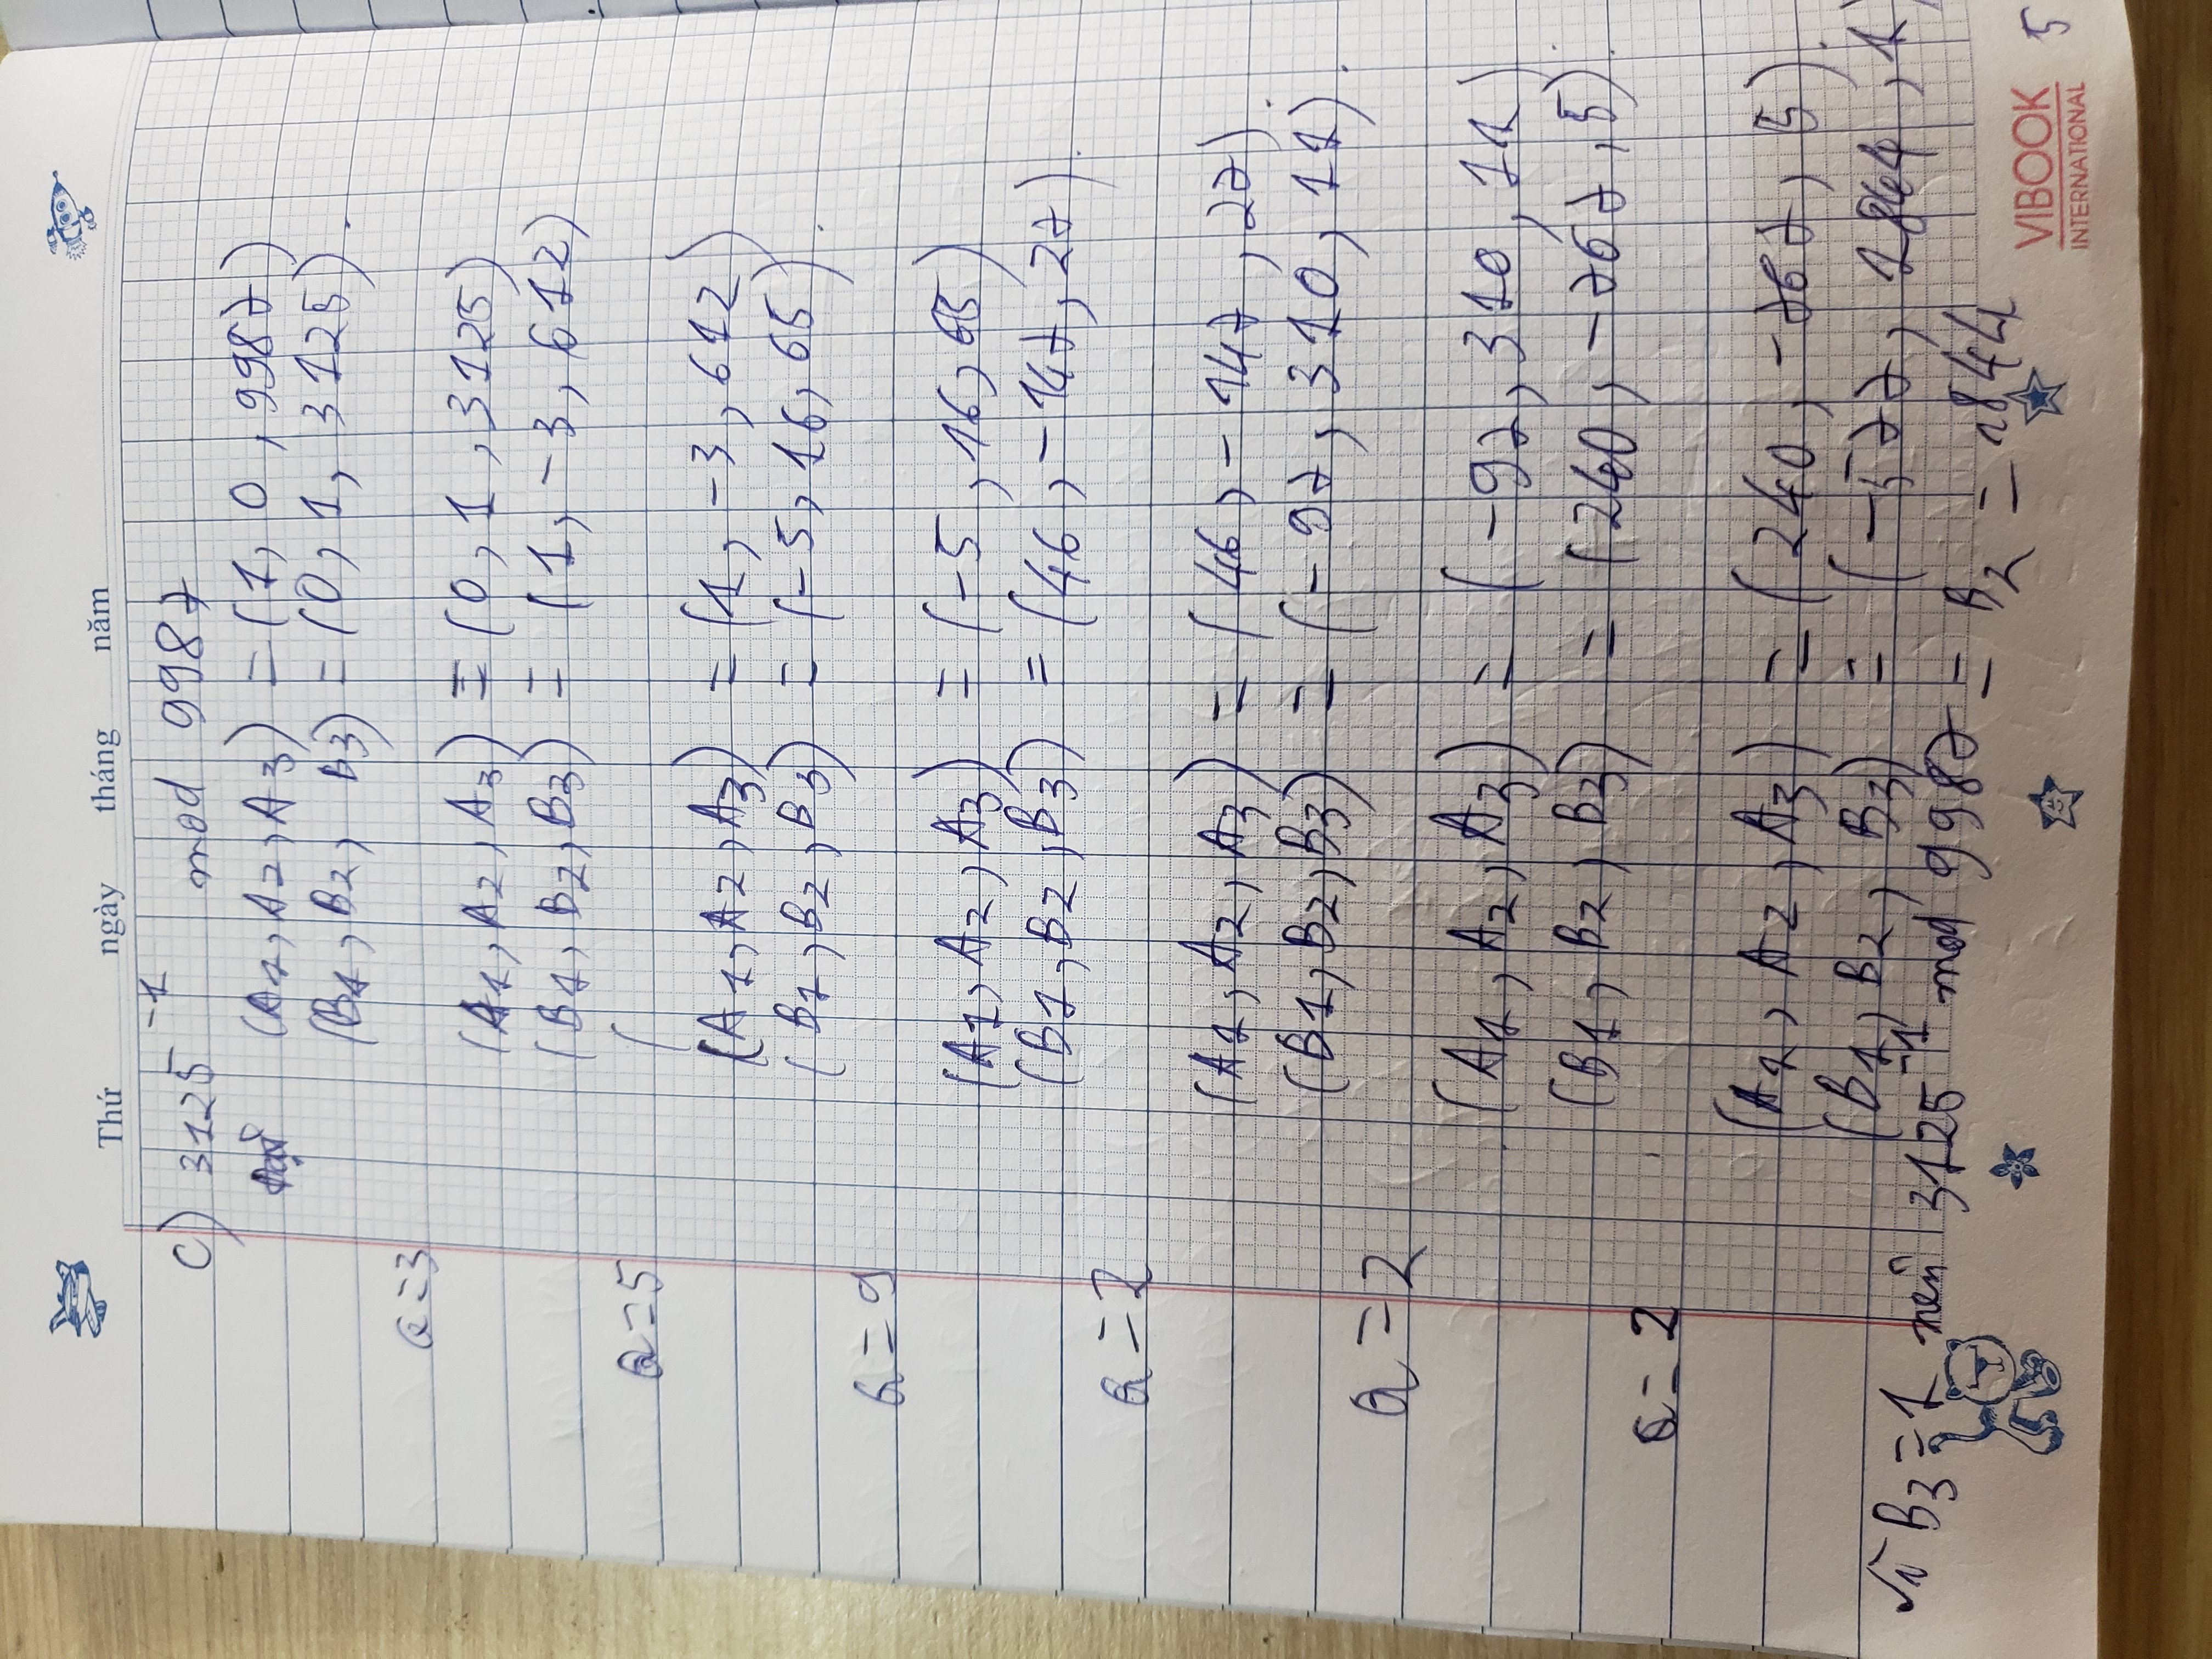 Thứ ngày tháng năm
C) 3125^-1 mod 9987
(A1, A2, A3) = (1, 0, 9987)
(B1, B2, B3) = (0, 1, 3125).
Q=3
(A1, A2, A3) = (0, 1, 3125)
(B1, B2, B3) = (1, -3, 612)
Q=5 (
(A1, A2, A3) = (1, -3, 612)
(B1, B2, B3) = (-5, 16, 65).
Q=9
(A1, A2, A3) = (-5, 16, 65)
(B1, B2, B3) = (46, -147, 27).
Q=2
(A1, A2, A3) = (46, -147, 27).
(B1, B2, B3) = (-97, 310, 11).
Q=2
(A1, A2, A3) = (-97, 310, 11).
(B1, B2, B3) = (240, -767, 5).
Q=2
(A1, A2, A3) = (240, -767, 5).
(B1, B2, B3) = (-577, 1844, 1)
Vì B3=1 nên 3125^-1 mod 9987 = B2 = 1844
VIBOOK
INTERNATIONAL
5